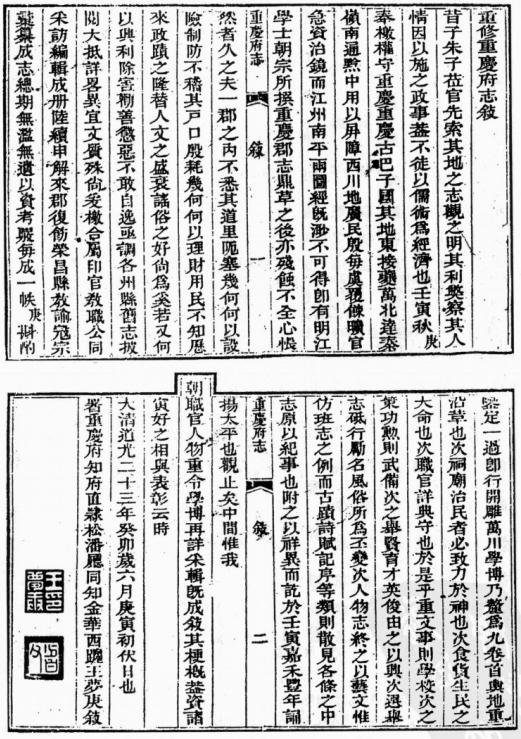 重修重慶府志敘
昔子朱子莅官先索其地之志觀之明其利獘察其人
情因以施之政事蓋不徒以儒術為經濟也壬寅秋庚
奉檄權守重慶重慶古巴子國其地東接夔萬北達秦
嶺南通黔中用以屏障西川地廣民殷每虞覆餗曠官
急資治鏡而江州南平兩圖經旣渺不可得卽有明江
學士朝宗所撰重慶郡志鼎草之後亦殘蝕不全心悵
然者久之夫一郡之內不悉其道里阨塞幾何何以設
險制防不稽其戶口殷耗幾何何以理財用民不知歷
來政蹟之隆替人文之盛衰謠俗之好尚為奚若又何
以興利除害勸善懲惡不敢自逸亟調各州縣舊志披
閱大抵詳畧異宜文質殊尙爰檄合屬印官敎職公同
采訪編輯成册陸續申解來郡復飭榮昌縣敎諭寇宗
纂成志總期無濫無遺以資考覈每成一帙庚斟酌
重慶府志
敘
一
鑒定一過卽行開雕萬川學博乃釐為九卷首輿地重
沿革也次祠廟治民者必致力於神也次食貨生民之
大命也次職官詳典守也於是乎重文事則學校次之
策功勲則武備次之舉賢育才英俊由之以興次選舉
志砥行勵名風俗所為丕變次人物志終之以藝文惟
仿班志之例而古蹟詩賦記序等類則散見各條之中
志原以紀事也附之以祥異而訖於壬寅嘉禾豐年誦
重慶府志
敘
二
揚太平也觀止矣中間惟我
朝職官人物重令學博再詳采輯旣成敍其梗槪蓋資諸
寅好之相與表彰云時
大清道光二十三年癸卯歲六月庚寅初伏日也
署重慶府知府直隷松潘廳同知金華西躔王夢庚敍